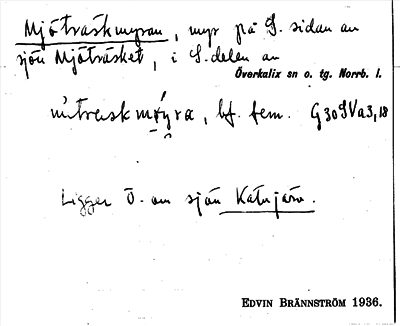 Mjöträskmyran, myr på S. sidan av
sjön Mjöträsket, i S. delen av
Överkalix sn o. tg. Norrb. l.
bf. fem. G30SVa3,18
Ligger Ö. om sjön Katujärv.
EDVIN BRÄNNSTRÖM 1936.